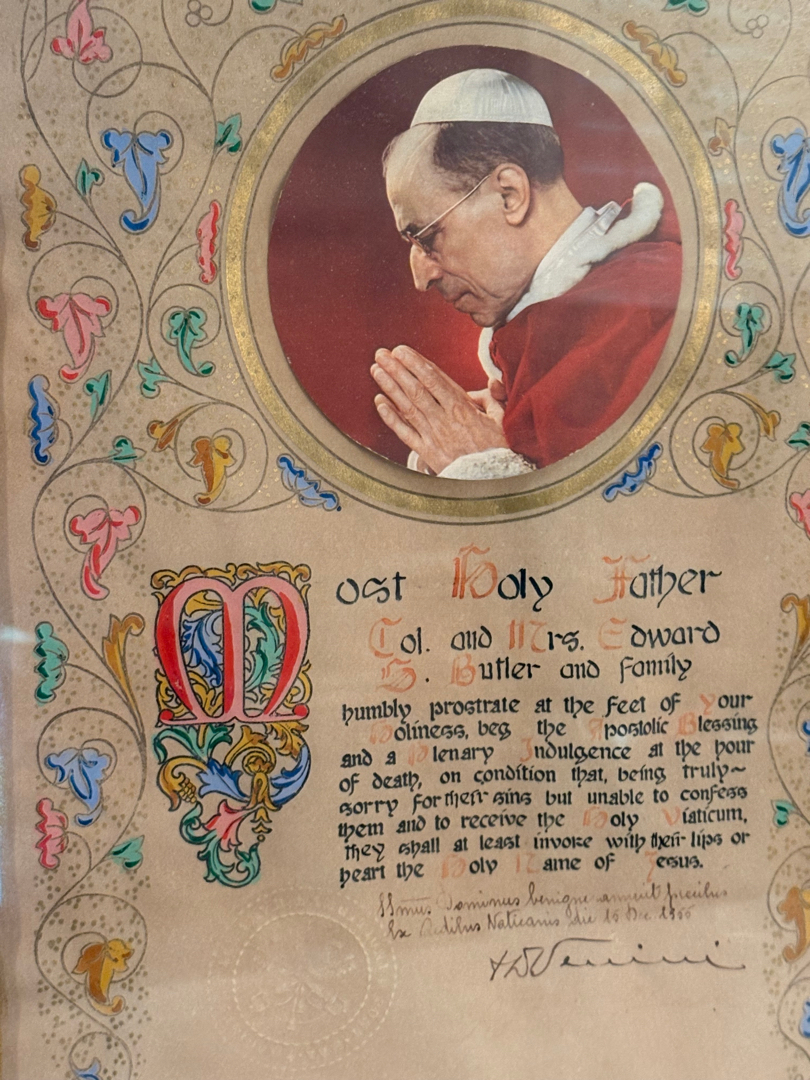 Most Holy Father
Col. and Mrs. Edward
S. Butler and family
humbly prostrate at the feet of Your
Holiness, beg the Apostolic Blessing
and a Plenary Indulgence at the hour
of death, on condition that, being truly~
sorry for their sins but unable to confess
them and to receive the Holy Viaticum,
they shall at least invoke with their lips or
heart the Holy Name of Jesus.
SSmus Dominus benigne annuit precibus
Ex Aedibus Vaticanis die 15 Dec 1956